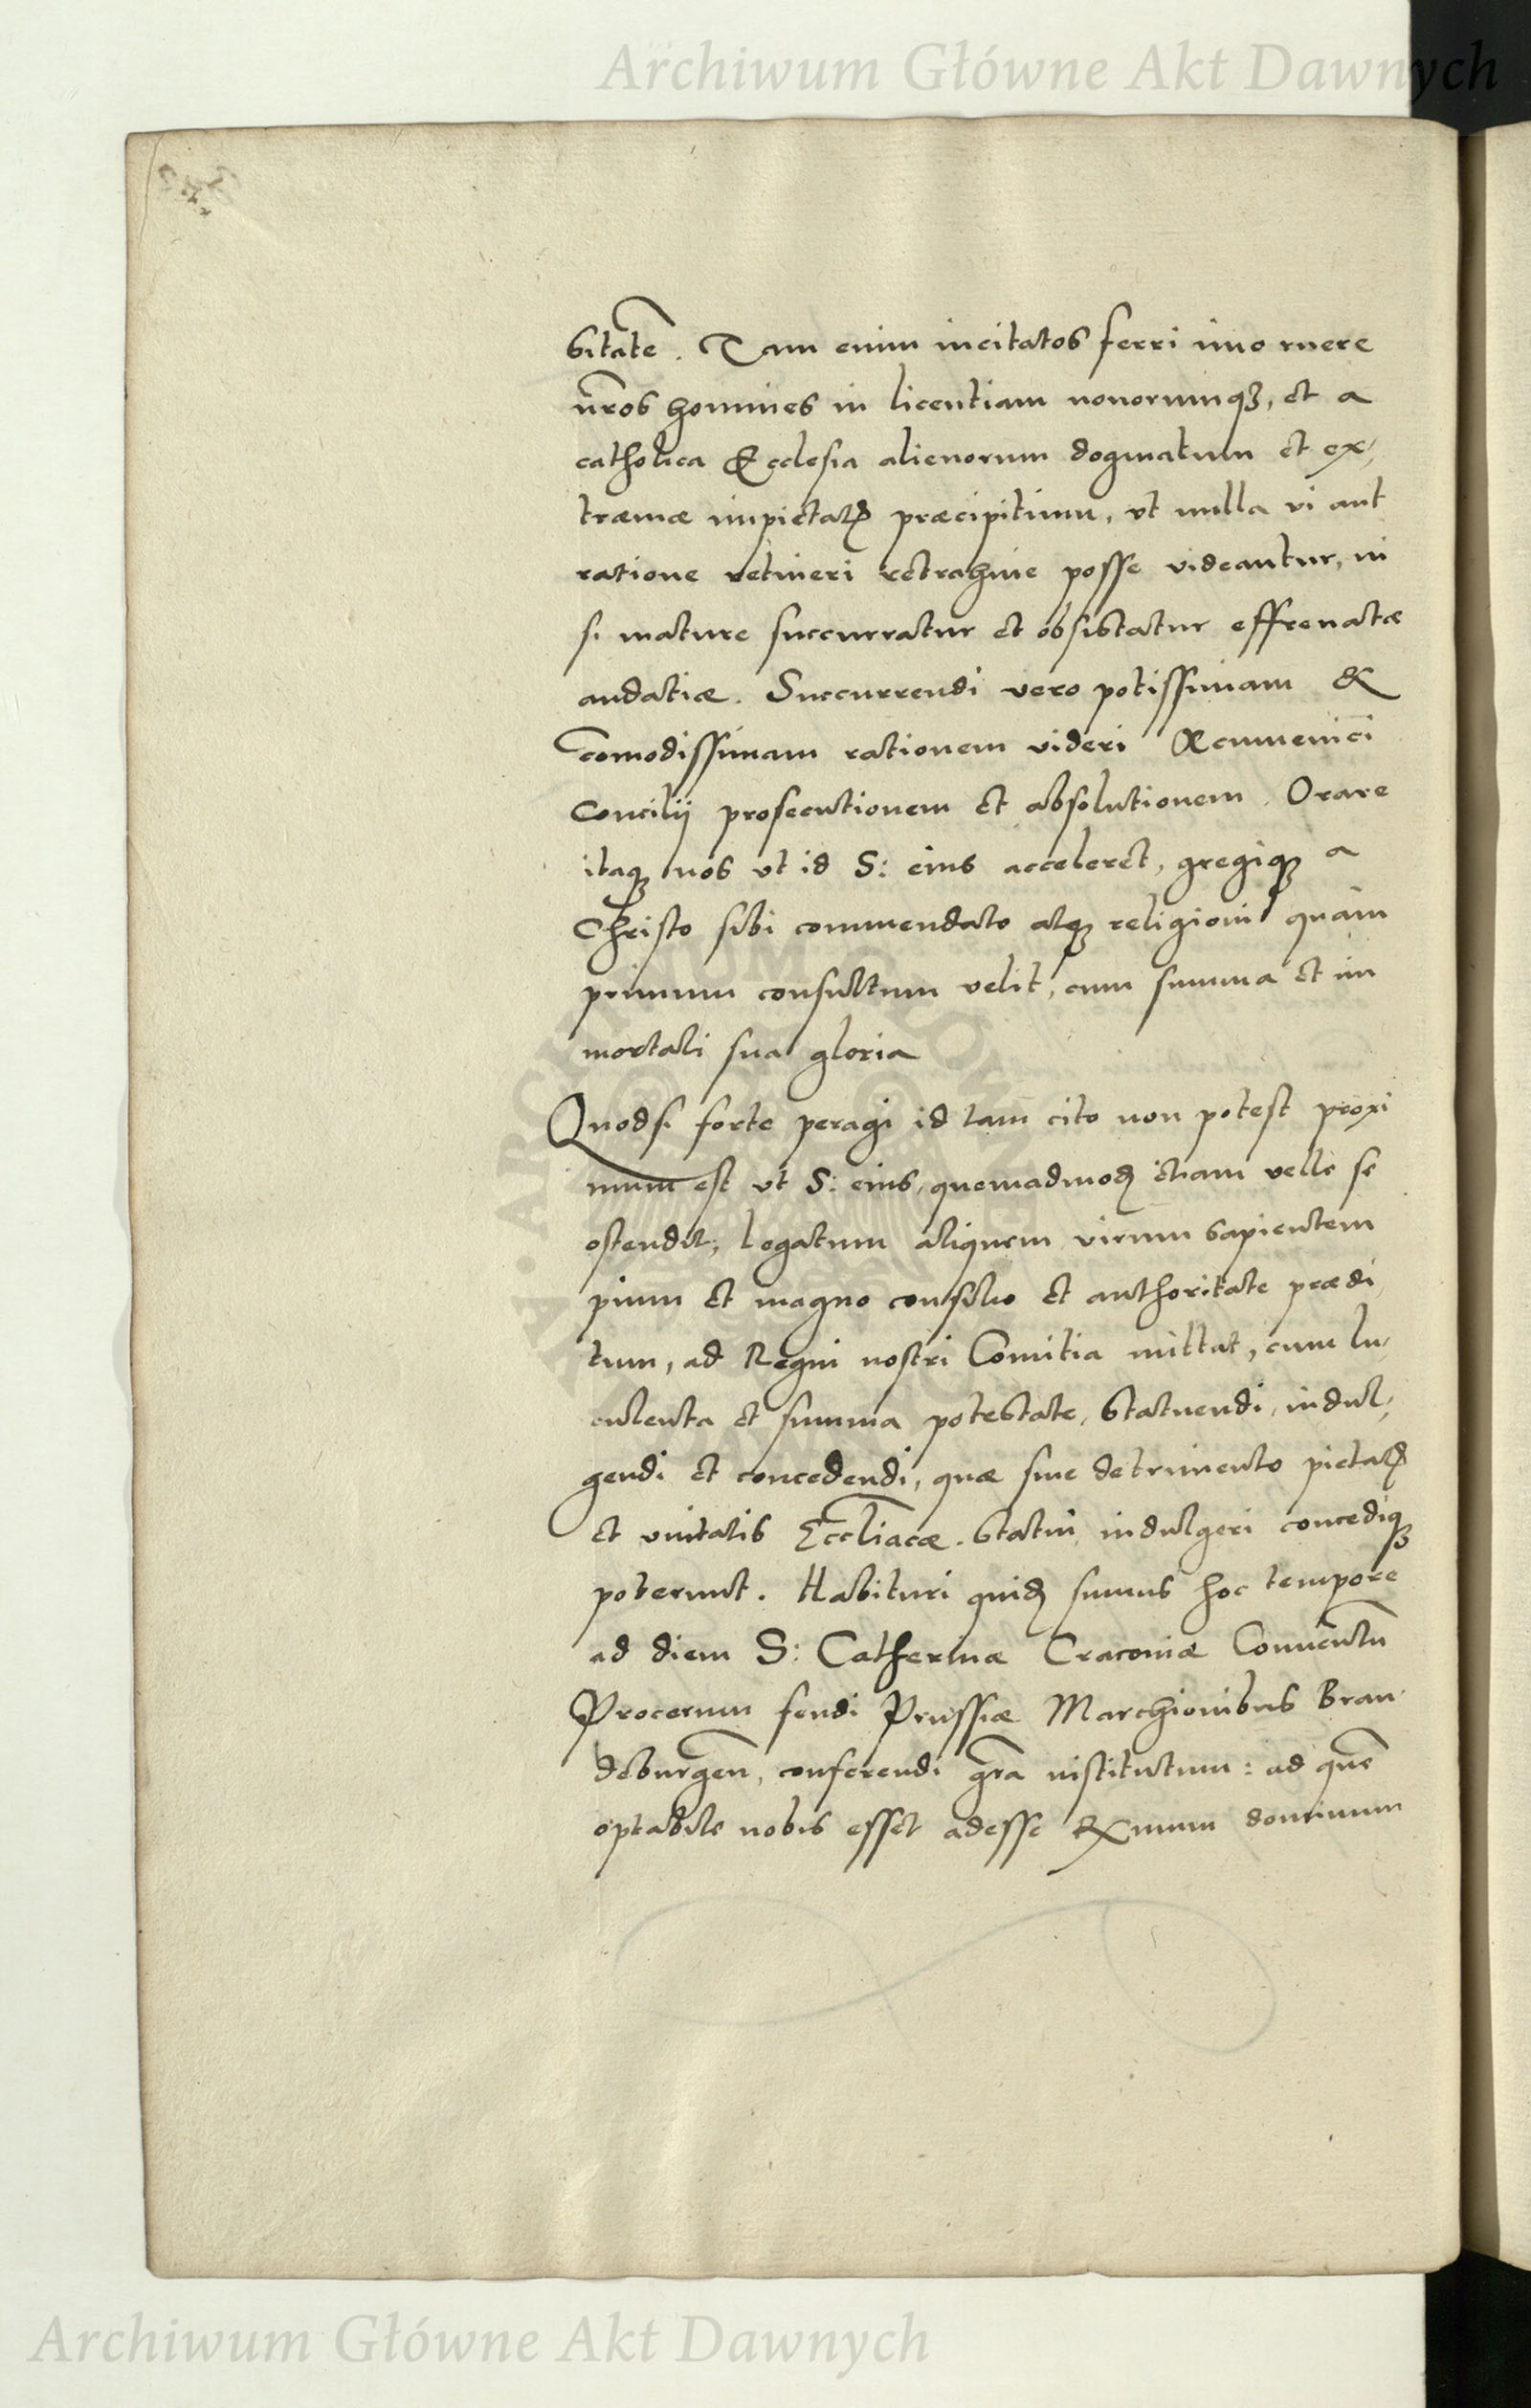 Archiwum Główne Akt Dawnych
sitatē. Tam enim incitatos ferri imo ruere
nr̃os homines in licentiam nonorumqꝫ, et a
catholica Ecclesia alienorum dogmatum et ex-
træmæ impietatꝭ præcipitium, vt nulla vi aut
ratione retineri retrahiue posse videantur, ni
si mature succurratur et obsistatur effrenatæ
audatiæ. Succurrendi vero potissimam &
com̃odissimam rationem videri Œcumenici
Concilij prosecutionem et absolutionem. Orare
itaqꝫ nos vt id S: eius acceleret, gregiqꝫ a
Christo sibi commendato atqꝫ religioni quam
primum consultum velit, cum summa et im
mortali sua gloria
Quodsi forte peragi id tam cito non potest proxi
mum est vt S: eius, quemadmodꝫ etiam velle se
ostendit, legatum aliquem virum sapientem
pium et magno consilio et authoritate prædi
tum, ad Regni nostri Comitia mittat, cum lu-
culenta et summa potestate, statuendi, indul-
gendi et concedendi, quæ sine detrimento pietatꝭ
et vnitatis Eccl̃iacæ. statui indulgeri concediqꝫ
poterunt. Habituri quidꝫ sumus hoc tempore
ad diem S: Catherinæ Cracouiæ Conuentũ
Procerum feudi Prussiæ Marchionibus Bran
deburgeñ, conferendi gr̃a institutum: ad quẽ
optabile nobis esset adesse Rxmum dominum
Archiwum Główne Akt Dawnych